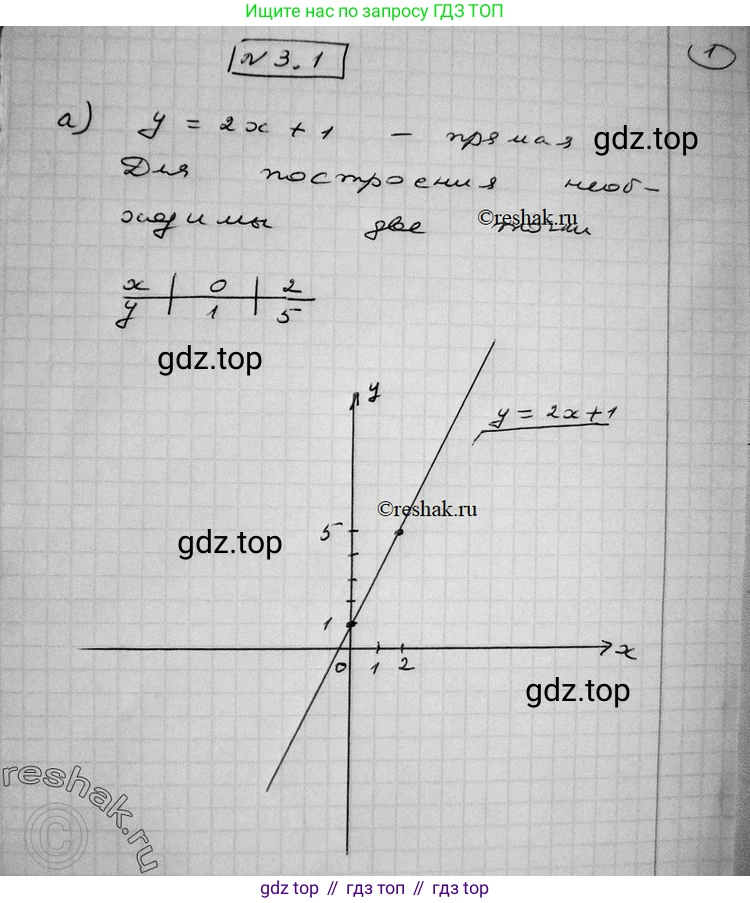 Ищите нас по запросу ГДЗ ТОП
№ 3.1
1
а) y = 2x + 1 – прямая
gdz.top
Для построения необ-
ходимы две точки
©reshak.ru
x 0 2
y 1 5
gdz.top
y
y = 2x+1
©reshak.ru
5
gdz.top
1
0 1 2 x
gdz.top
reshak.ru
©
gdz top // гдз топ // gdz top